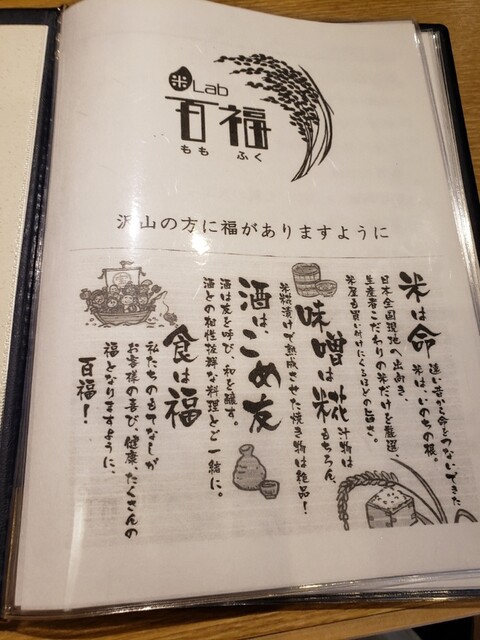 米Lab
百福
ももふく
沢山の方に福がありますように
米は命
遠い昔から命をつないできた
米は、いのちの根。
日本全国現地へ出向き、
生産者こだわりの米だけを厳選、
米屋も買い付けにくるほどの旨さ。
味噌は糀
汁物は
もちろん、
米糀漬けで熟成させた焼き物は絶品！
酒は、こめ友
酒は友を呼び、和を醸す。
酒との相性抜群な料理とご一緒に。
食は福
私たちのおもてなしが
お客様の喜び、健康、たくさんの
福となりますように、
百福！